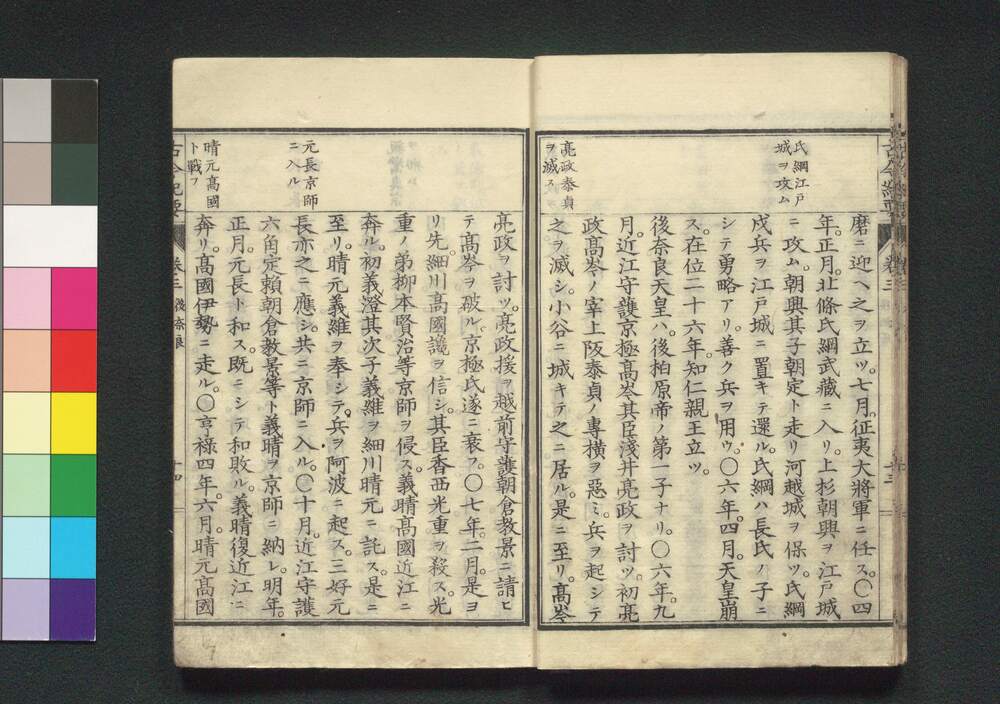 氏綱江戸
城ヲ攻ム
亮政泰貞
ヲ滅ス
磨ニ迎ヘ之ヲ立ツ。七月。征夷大將軍ニ任ス。〇四
年。正月。北條氏綱武藏ニ入リ。上杉朝興ヲ江戸城
ニ攻ム。朝興其子朝定ト走リ河越城ヲ保ツ。氏綱
戍兵ヲ江戸城ニ置キテ還ル。氏綱ハ長氏ノ子ニ
シテ勇略アリ。善ク兵ヲ用ウ。〇六年。四月。天皇崩
ス。在位二十六年。知仁親王立ツ。
後奈良天皇ハ。後柏原帝ノ第一子ナリ。〇六年。九
月。近江守護京極高岑其臣淺井亮政ヲ討ツ。初亮
政高岑ノ宰上阪泰貞ノ專横ヲ惡ミ。兵ヲ起シテ
之ヲ滅シ。小谷ニ城キテ之ニ居ル。是ニ至リ。高岑
元長京師
ニ入ル
晴元高國
ト戰フ
亮政ヲ討ツ。亮政援ヲ越前守護朝倉教景ニ請ヒ
テ高岑ヲ破ル。京極氏遂ニ衰フ。〇七年。二月。是ヨ
リ先。細川高國讒ヲ信シ。其臣香西光重ヲ殺ス。光
重ノ弟柳本賢治等京師ヲ侵ス。義晴高國近江ニ
奔ル。初義澄其次子義維ヲ細川晴元ニ託ス。是ニ
至リ。晴元義維ヲ奉シテ。兵ヲ阿波ニ起ス。三好元
長亦之ニ應シ。共ニ京師ニ入ル。〇十月。近江守護
六角定賴朝倉教景等ト義晴ヲ京師ニ納レ。明年。
正月。元長ト和ス。既ニシテ和敗ル。義晴復近江ニ
奔リ。高國伊勢ニ走ル。〇亨祿四年。六月。晴元高國
古今紀要
卷三
十四